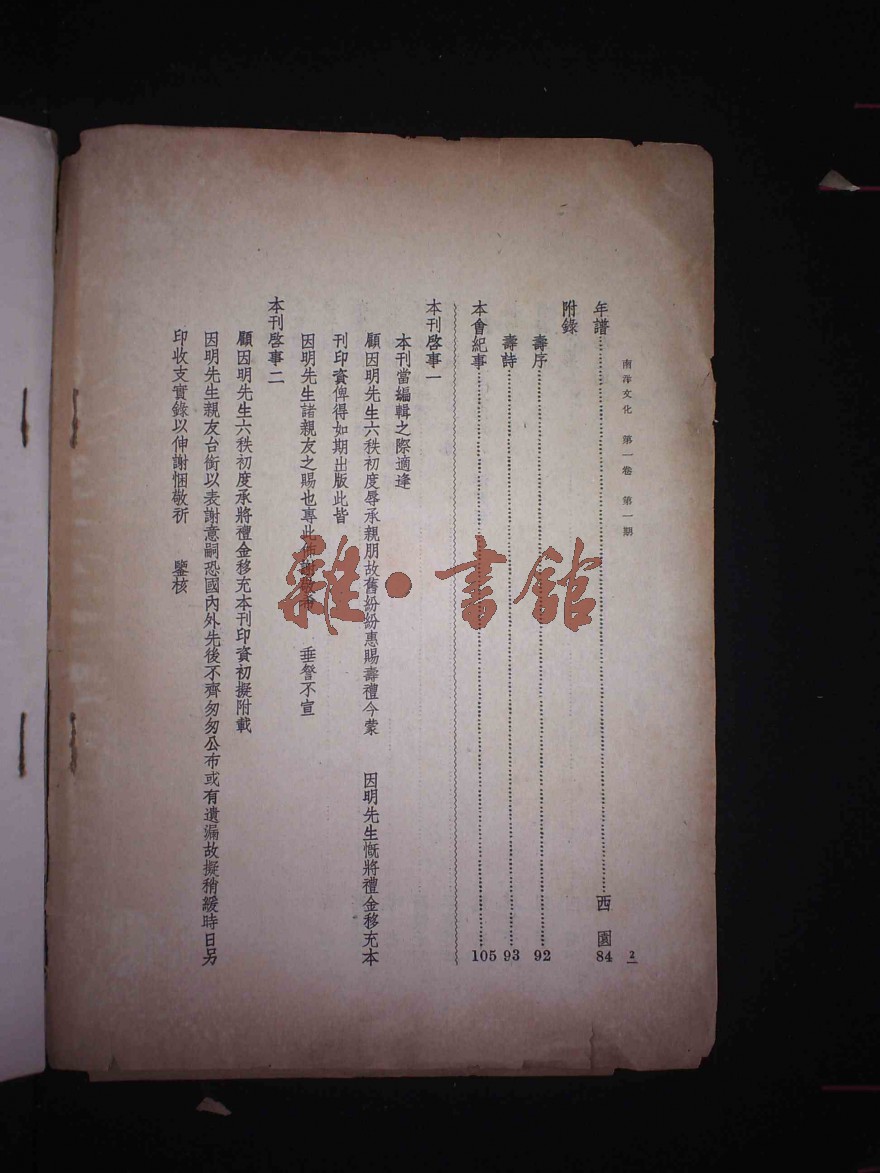 南洋文化 第一卷 第一期 2
年譜……西園 84
附錄
壽序……92
壽詩……93
本會紀事……105
本刊啓事一
本刊當編輯之際適逢
顧因明先生六秩初度辱承親朋故舊紛紛惠賜壽禮今蒙 因明先生慨將禮金移充本
刊印資俾得如期出版此皆
因明先生諸親友之賜也專此佈謝 垂詧不宣
本刊啓事二
顧因明先生六秩初度承將禮金移充本刊印資初擬附載
因明先生親友台銜以表謝意嗣恐國內外先後不齊匆匆公布或有遺漏故擬稍緩時日另
印收支實錄以伸謝悃敬祈 鑒核
雜·書館